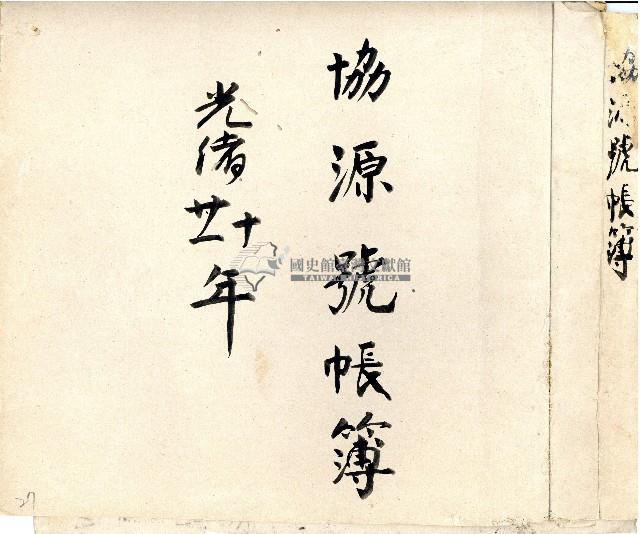 協源號帳簿
協源號帳簿
光緒廿十年
國史館臺灣文獻館
TAIWAN HISTORICA
27